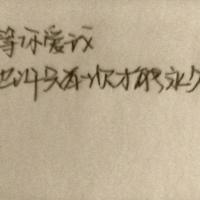 等你爱我
也许只有一次才能永久